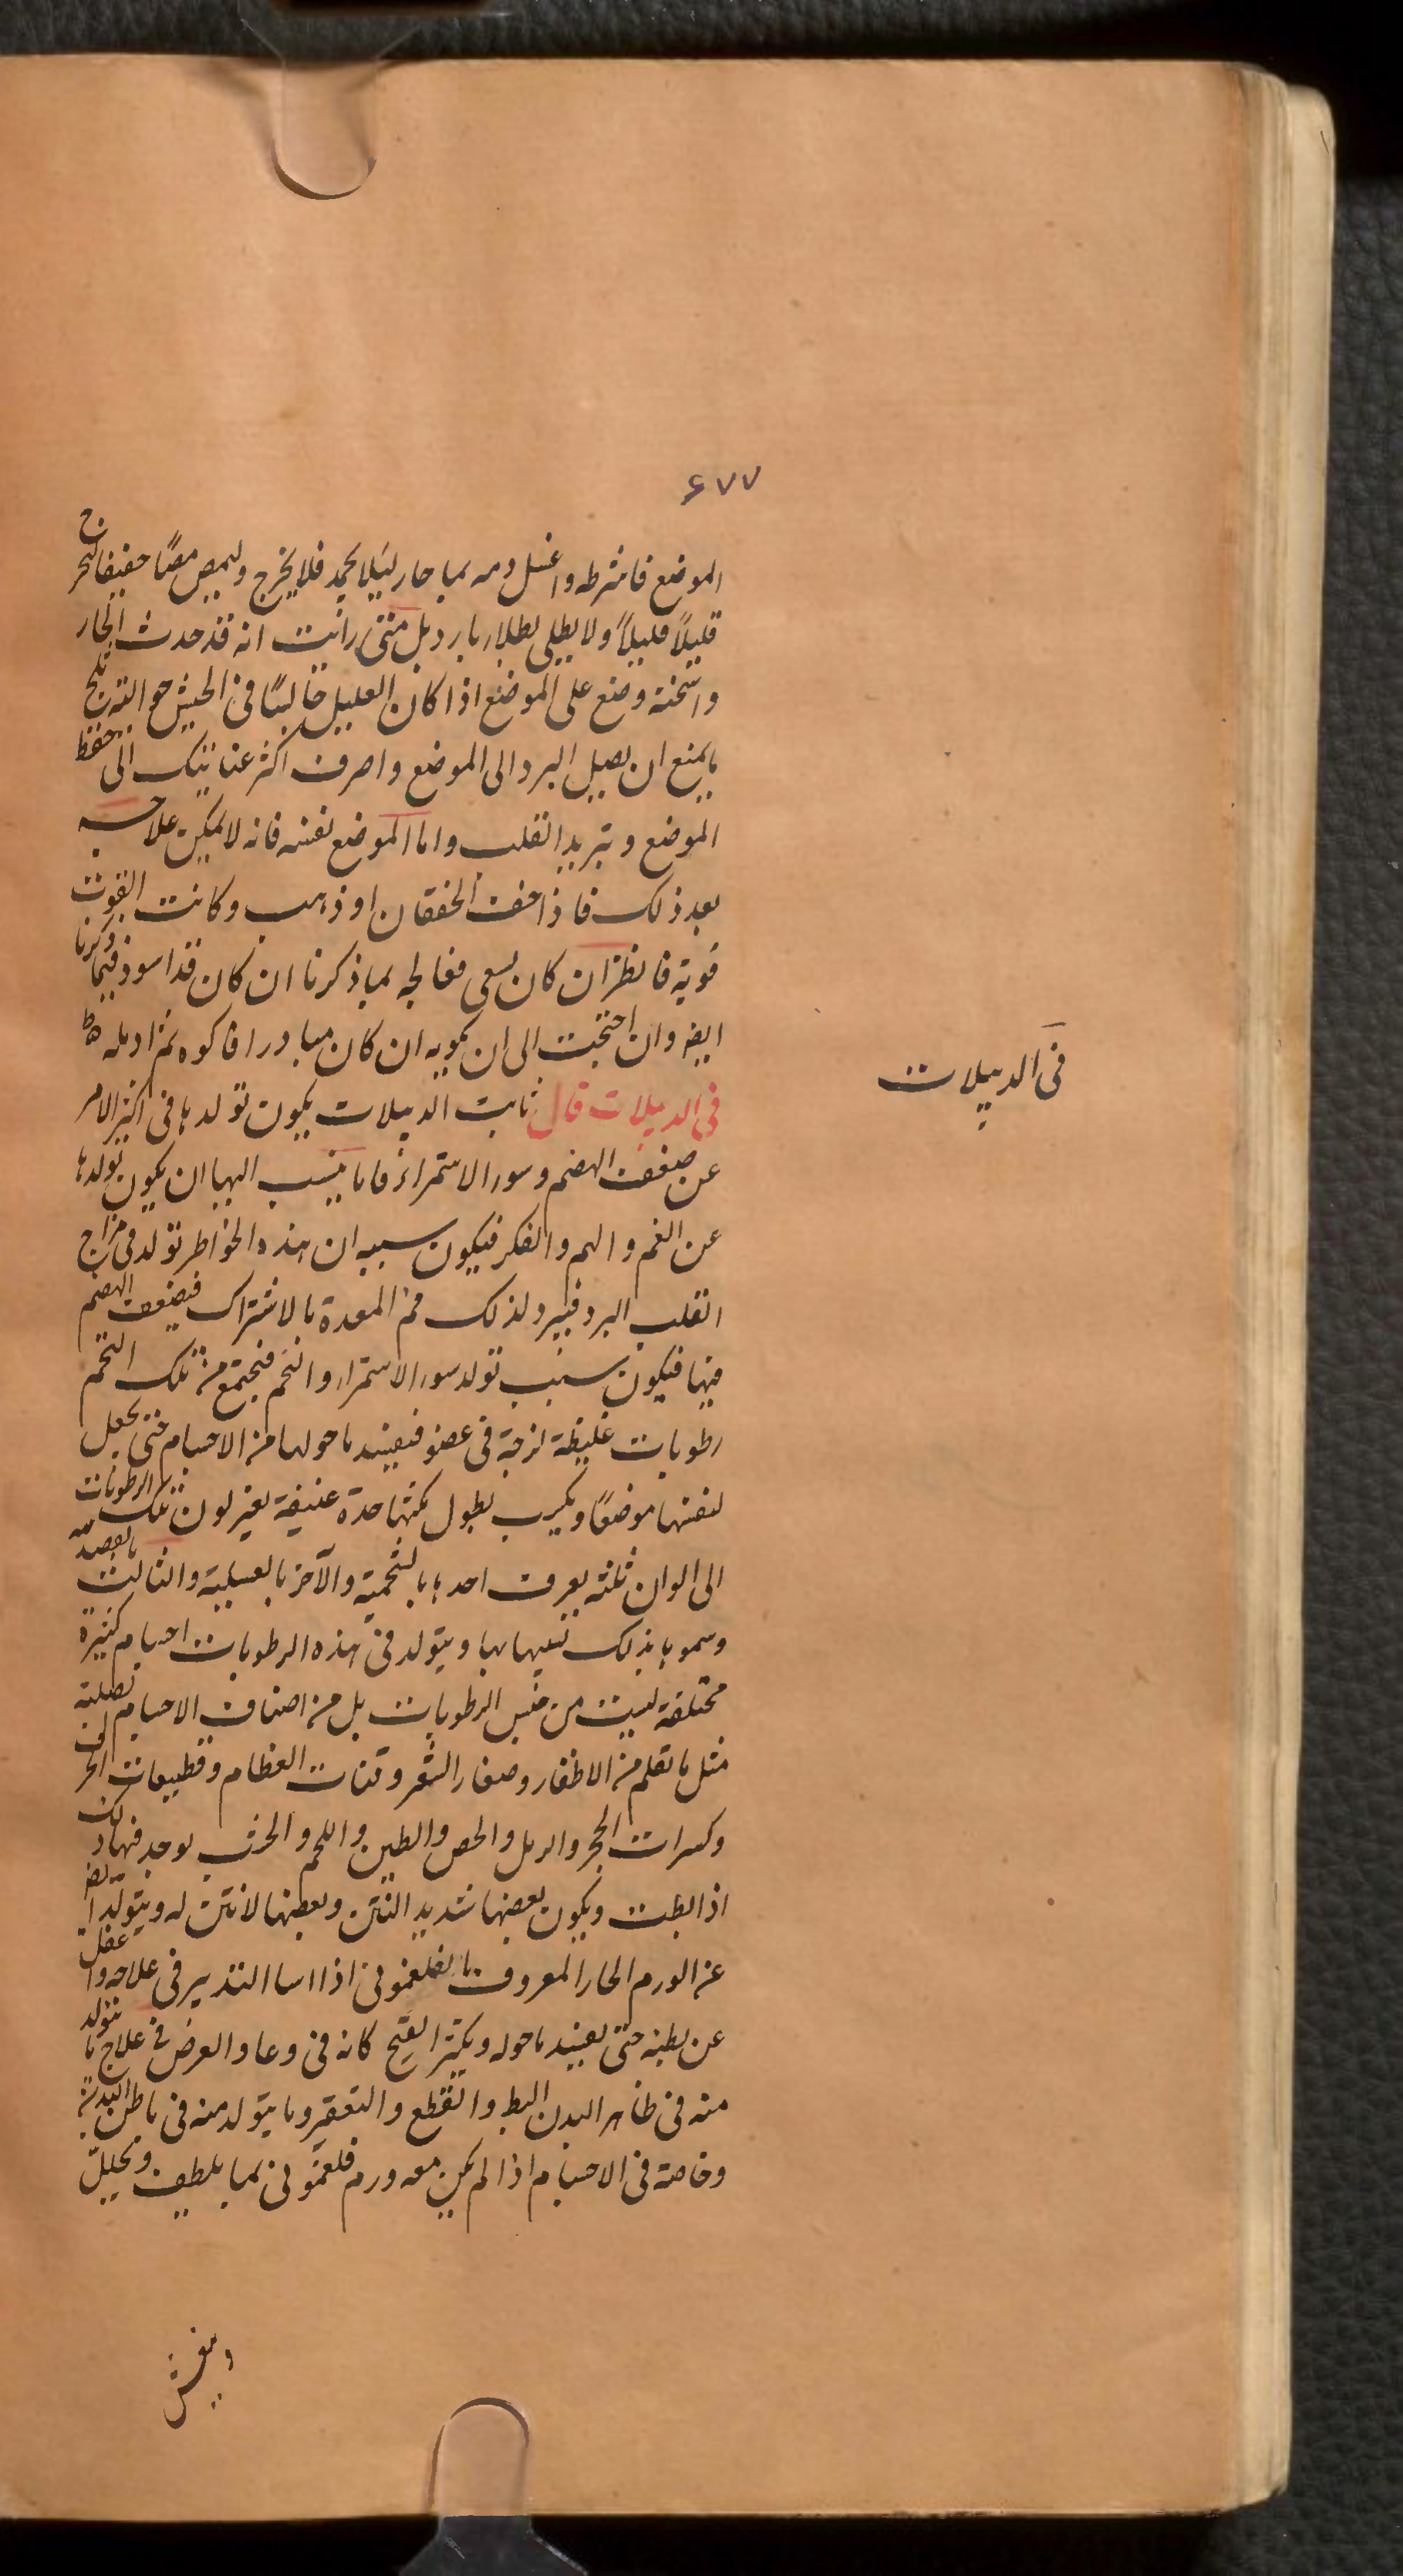 ٤٧٧
الموضع فاشرطه واغسل دمه بما حار لئلا يجمد فلا يخرج وليمص مصًا خفيفا ليخرج
قليلاً قليلاً ولا يطلى بطلاء بارد بل متى رأيت انه قد حدث الحار
واسخنه وضع على الموضع اذا كان العليل جالسًا فى الخيش حواليه
ما يمنع ان يصل البرد الى الموضع واصرف اكثر عنايتك الى حفظ
الموضع وتبريد القلب واما الموضع نفسه فانه لا يمكن علاجه
بعد ذلك فاذا خف الخفقان او ذهب وكانت القوة
قوية فانظر ان كان يسعى فعالجه بما ذكرنا ان كان قد اسود فبما ذكرنا
ايضا وان احتجت الى ان تكويه ان كان مبادرا فاكوه ثم ادمله
فى الدبيلات قال ثابت الدبيلات يكون تولدها فى اكثر الامر
عن ضعف الهضم وسوء الاستمراء فاما ينسب اليها ان يكون تولدها
عن الغم والهم والفكر فيكون سببه ان هذه الخواطر تولد فى مزاج
القلب البرد فيبرد لذلك فم المعدة بالاشتراك فيضعف الهضم
فيها فيكون سبب تولد سوء الاستمراء والتخم فيجتمع من تلك التخم
رطوبات غليظة لزجة فى عضو فيفسد ما حولها من الاجسام حتى يجعل
لنفسها موضعًا ويكسب بطول مكثها حدة عنيفة بغير لون تلك الرطوبات
الى الوان ثلثه يعرف احدها بالشحمية والآخر بالعسلية والثالث بالعصيدية
وسموها بذلك تشبيها بها ويتولد فى هذه الرطوبات اجسام كثيرة
مختلفة ليست من جنس الرطوبات بل من اصناف الاجسام الصلبة
مثل ما تقلم من الاظفار وصغار الشعر وفتات العظام وقطيعات الخزف
وكسرات الحجر والرمل والجص والطين واللحم والخشب يوجد فيها ذلك
اذا بطت ويكون بعضها شديد النتن وبعضها لا نتن له ويتولد ايضا
عن الورم الحار المعروف بالفلغمونى اذا اسا التدبير فى علاجه واغفل
عن بطنه حتى يفسد ما حوله ويكثر القيح كانه فى وعا والعرض فى علاج ما يتولد
منه فى ظاهر البدن البط والقطع والتقعير وما يتولد منه فى باطن البدن
وخاصة فى الاجسام اذا لم يكن معه ورم فلغمونى بما يلطف ويحلل
فى الدبيلات